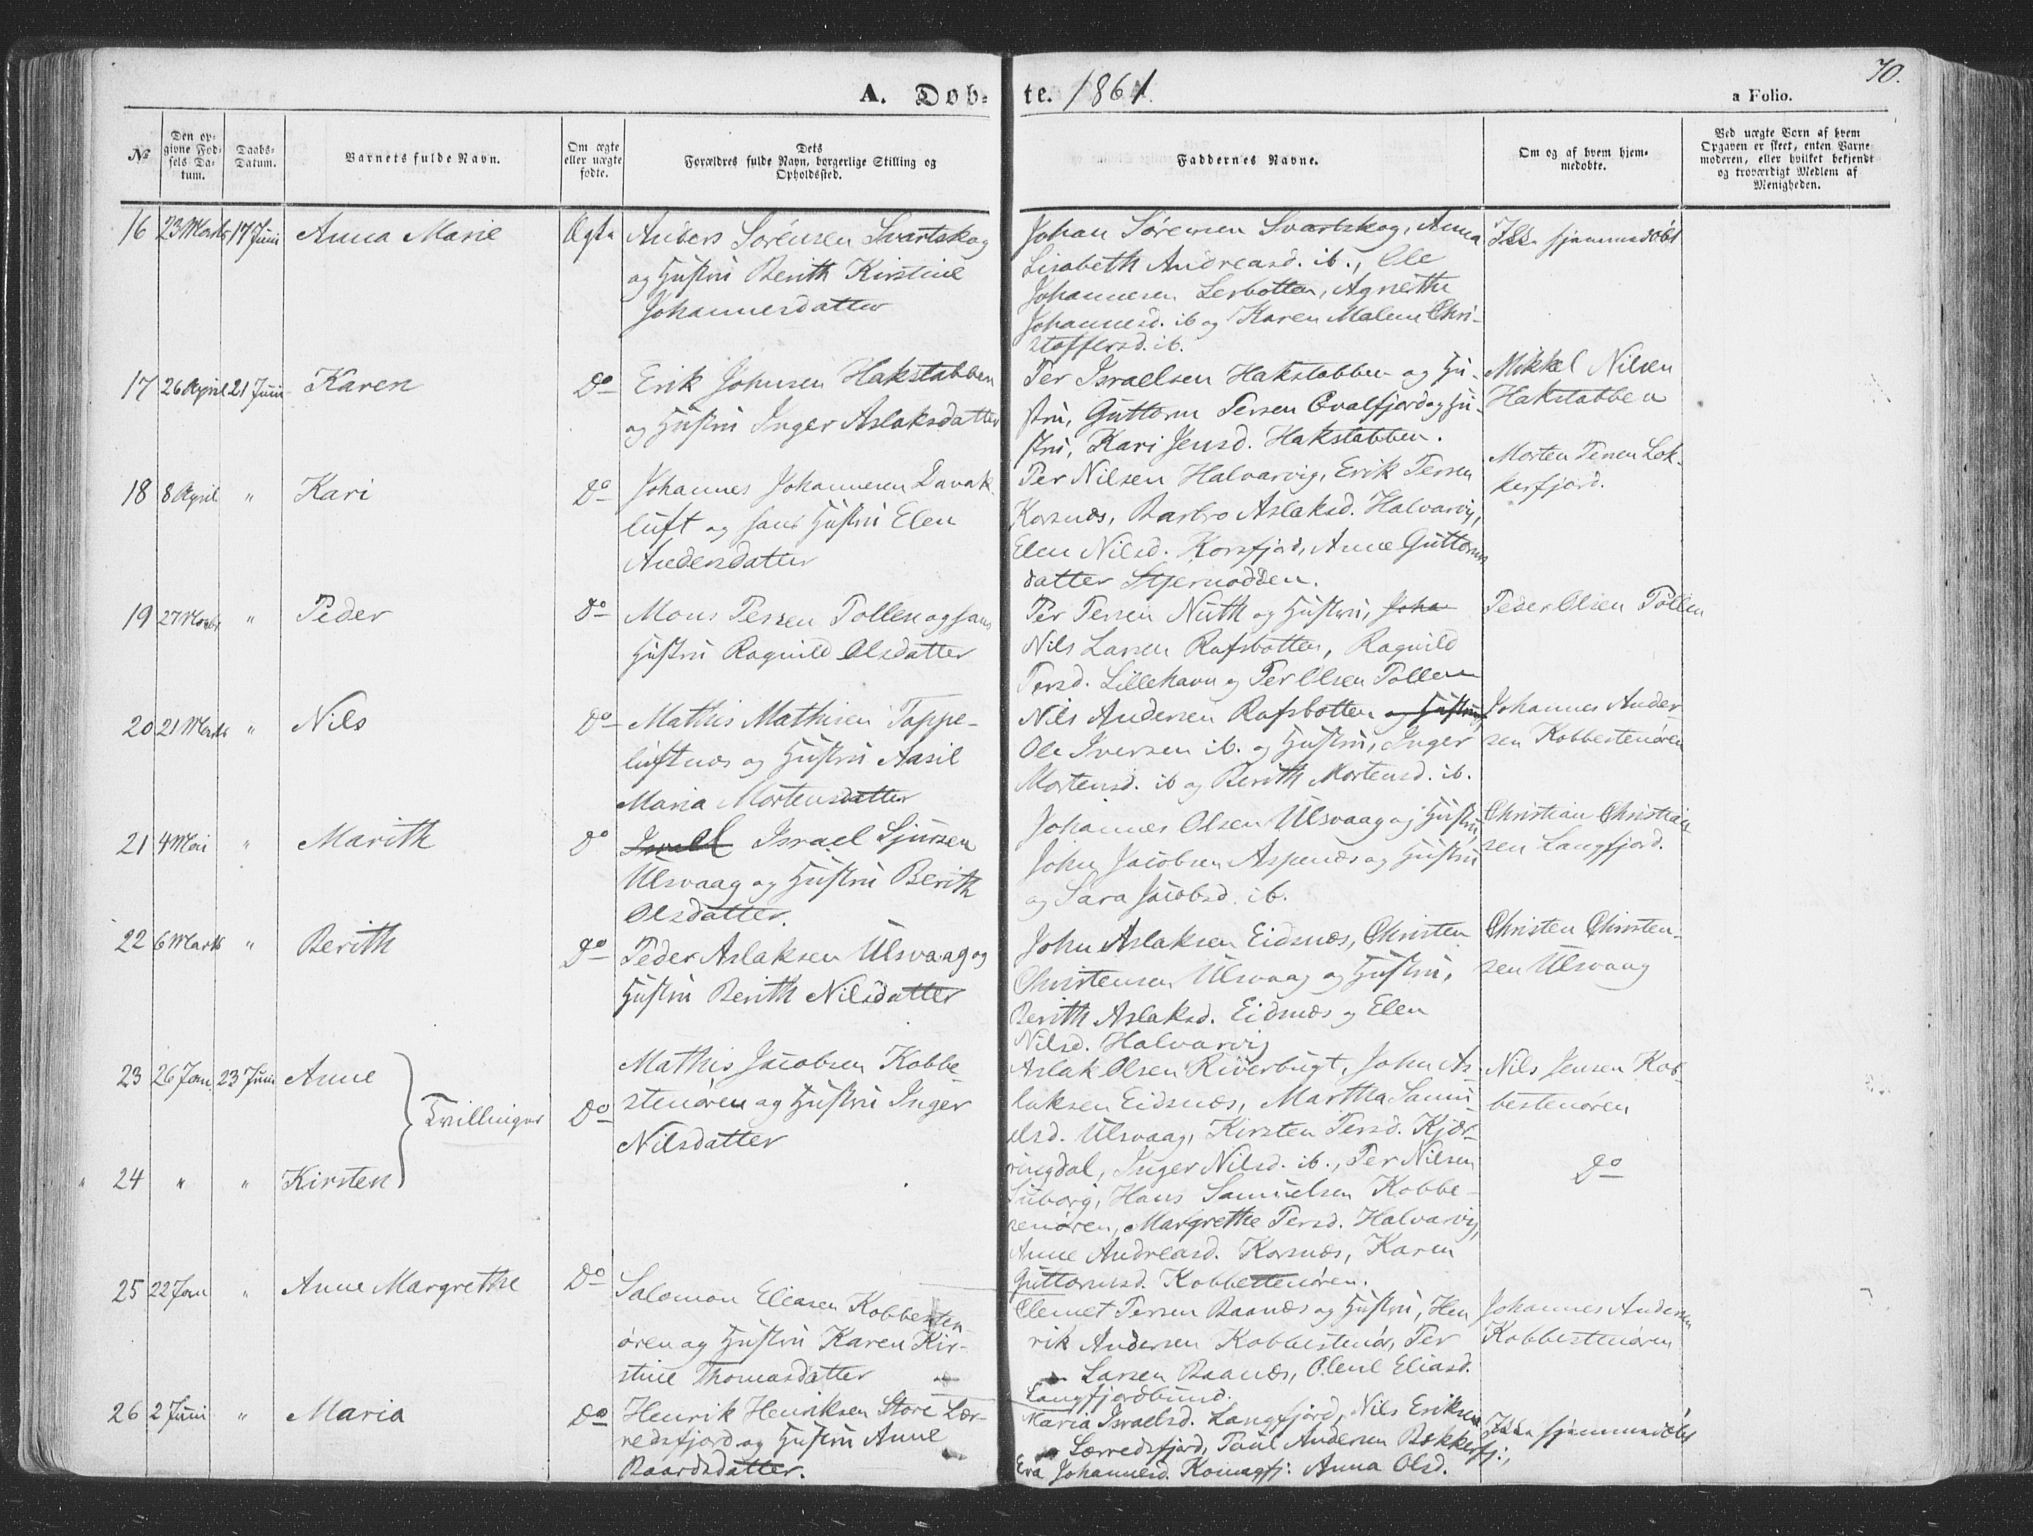 70.
A. Døb-te. 1861.
a Folio.
№
Den op-
givne Fød-
sels Da-
tum.
Daabs-
Datum.
Barnets fulde Navn.
Om ægte
eller uægte
fødte.
Dets
Forældres fulde Navn, borgerlige Stilling og
Opholdssted.
Faddernes Navne.
Om og af hvem hjem-
medøbte.
Ved uægte Børn af hvem
Opgaven er skeet, enten Barne-
moderen, eller hvilket bekjendt
og troværdigt Medlem af
Menigheden.
16 23 Marts 17 Juni Anna Marie Ægte
Anders Sørensen Svartskog
og Hustru Berith Kirstine
Johannesdatter
Johan Sørensen Svartskog, Anna
Lisabeth Andreasd. ib., Ole
Johannesen Lerbotten, Agnethe
Johannesd. ib og Karen Malene Chri-
stoffersd. ib.
Ikke hjemmedøbt
17 26 April 21 Juni Karen Do
Erik Johnsen Hakstabben
og Hustru Inger Aslaksdatter
Per Israelsen Hakstabben og Hu-
stru, Guttorm Persen Qvalfjord og Hu-
stru, Kari Jensd. Hakstabben.
Mikkel Nilsen
Hakstabben
18 8 April " Kari Do
Johannes Johannesen Davak
luft og hans Hustru Elen
Andersdatter
Per Nilsen Halvarvig, Erik Persen
Korsnæs, Barbro Aslaksd. Halvarvig,
Elen Nilsd. Korsfjord, Anne Guttorms
datter Stjernodden.
Morten Persen Lok-
kerfjord.
19 27 Marts " Peder Do
Mons Persen Pollen og hans
Hustru Ragnild Olsdatter
Per Persen Nuth og Hustru, Joha
Nils Larsen Rafsbotten, Ragnild
Persd. Lillehavn og Per Olsen Pollen
Peder Olsen Pollen
20 21 Marts " Nils Do
Mathis Mathisen Tappe-
luftnæs og Hustru Aasil
Maria Mortensdatter
Nils Andersen Rafsbotten og Hustru,
Ole Iversen ib. og Hustru, Inger
Mortensd. ib og Berith Mortensd. ib.
Johannes Ander-
sen Kobbestenøren
21 4 Mai " Marith Do
Israel Israel Sjursen
Ulsvaag og Hustru Berith
Olsdatter.
Johannes Olsen Ulsvaag og Hustru,
John Jacobsen Aspenæs og Hustru
og Sara Jacobsd. ib.
Christian Christian
sen Langfjord.
22 6 Marts " Berith Do
Peder Aslaksen Ulsvaag og
Hustru Berith Nilsdatter
John Aslaksen Eidsnæs, Christen
Christensen Ulsvaag og Hustru,
Berith Aslaksd. Eidsnæs og Elen
Nilsd. Halvarvig
Christen Christen-
sen Ulsvaag
23 26 Jan 23 Juni Anne
Tvillinger Do
Mathis Jacobsen Kobbe-
stenøren og Hustru Inger
Nilsdatter
Aslak Olsen Riverbugt, John As-
laksen Eidsnæs, Martha Samu-
elsd. Ulsvaag, Kirsten Persd. Kjær-
ringdal, Inger Nilsd. ib., Per Nilsen
Nils Jensen Kob-
bestenøren
24 " " Kirsten
Hans Samuelsen Kobbe-
stenøren, Margrethe Persd. Halvarvig,
Anne Andreasd. Korsnæs, Karen
Guttormsd. Kobbestenøren.
Do
25 22 Jan " Anne Margrethe Do
Salomon Eliasen Kobbesten
øren og Hustru Karen Kir-
stine Thomasdatter
Clemet Persen Baanæs og Hustru, Hen
rik Andersen Kobbestenør, Per
Larsen Baanæs, Olene Eliasd.
Langfjordbund.
Johannes Andersen
Kobbestenøren
26 2 Juni " Maria Do
Henrik Henriksen Store Lær-
redsfjord og Hustru Anne
Baardsdatter.
Maria Israelsd. Langfjord, Nils Eriksen
Lærredsfjord, Paul Andersen Bekkerfj:,
Eva Johannesd. Komagfj: Anna Olsd.
Ikke hjemmedøbt